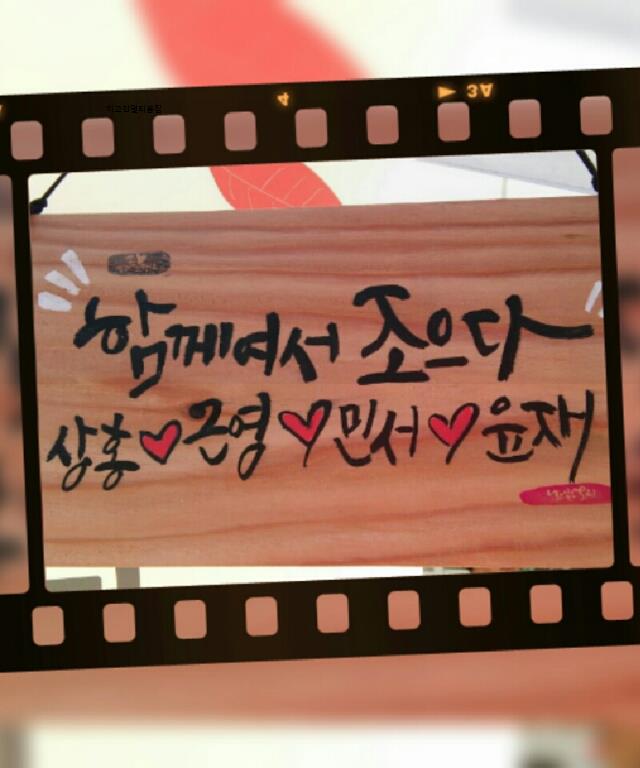 4
▶ 3A
함께여서 조으다
상홍♥근영♥민서♥윤재